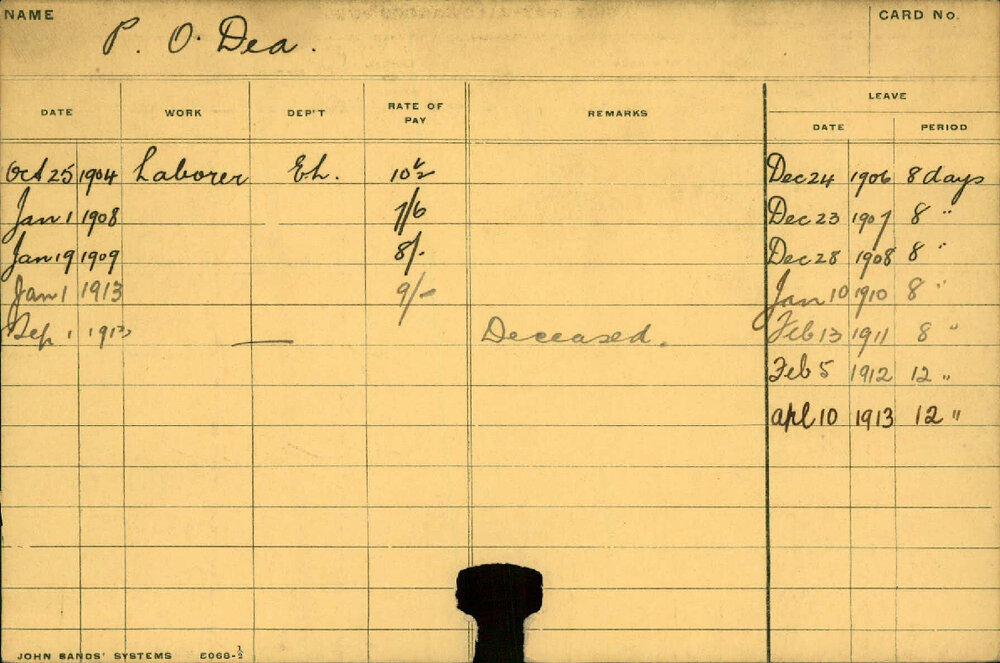 NAME P. O'Dea. CARD No.
DATE WORK DEP'T RATE OF PAY REMARKS LEAVE
DATE PERIOD
Oct 25 1904 Laborer Eh. 10½ Dec 24 1906 8 days
Jan 1 1908 7/6 Dec 23 1907 8 "
Jan 19 1909 8/- Dec 28 1908 8 "
Jan 1 1913 9/- Jan 10 1910 8 "
Sep 1 1913 — Deceased. Feb 13 1911 8 "
Feb 5 1912 12 "
Apl 10 1913 12 "
JOHN SANDS' SYSTEMS 5068-½